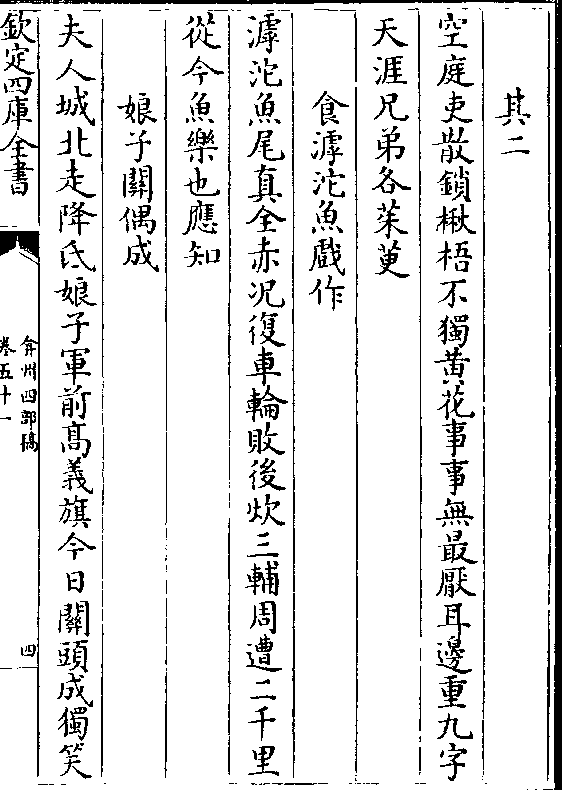 其二
空庭吏散鎖楸梧不獨黄花事事無最厭耳邊重九字
天涯兄弟各茱萸
食滹沱魚戲作
滹沱魚尾真全赤况復車輪敗後炊三輔周遭二千里
從今魚樂也應知
娘子關偶成
夫人城北走降氐娘子軍前髙義旗今日關頭成獨笑
欽定四庫全書
弇州四部稿
卷五十一
四